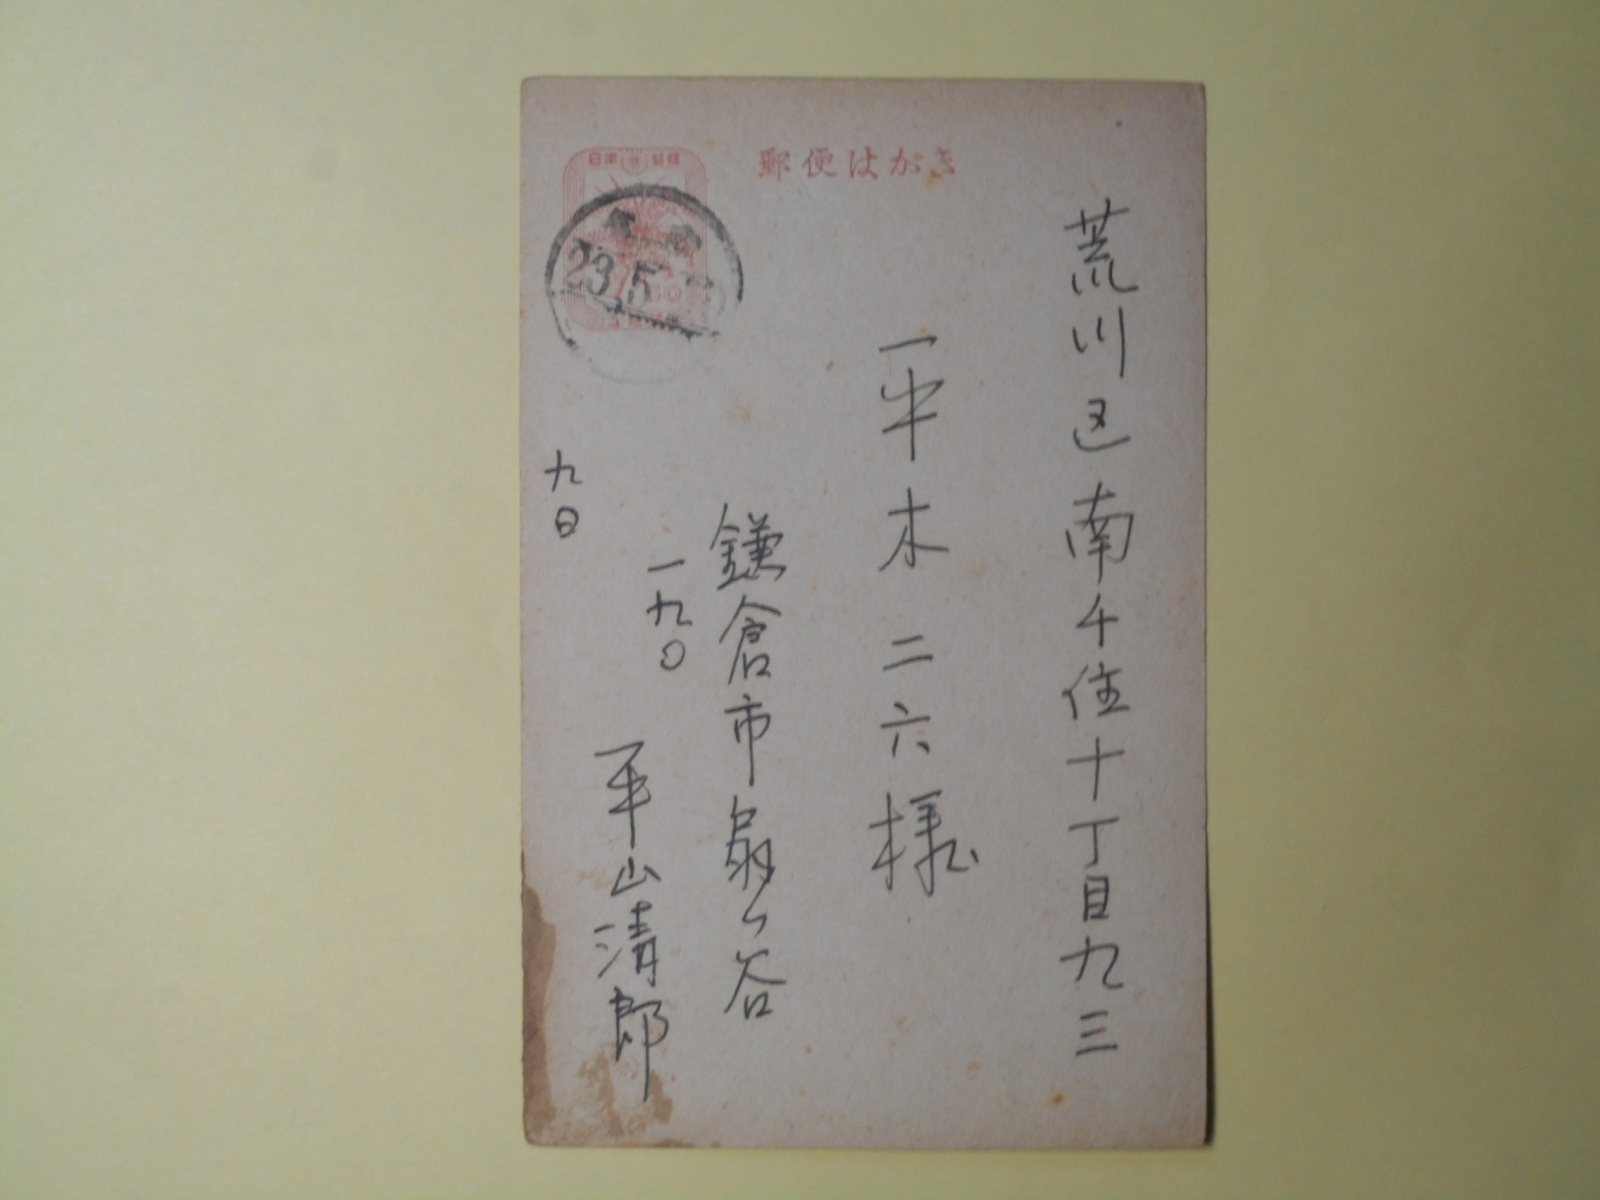 郵便はがき
日本郵便
23.5
荒川区南千住十丁目九三
一半木二六様
鎌倉市扇ヶ谷
一九〇
平山清郎
九日